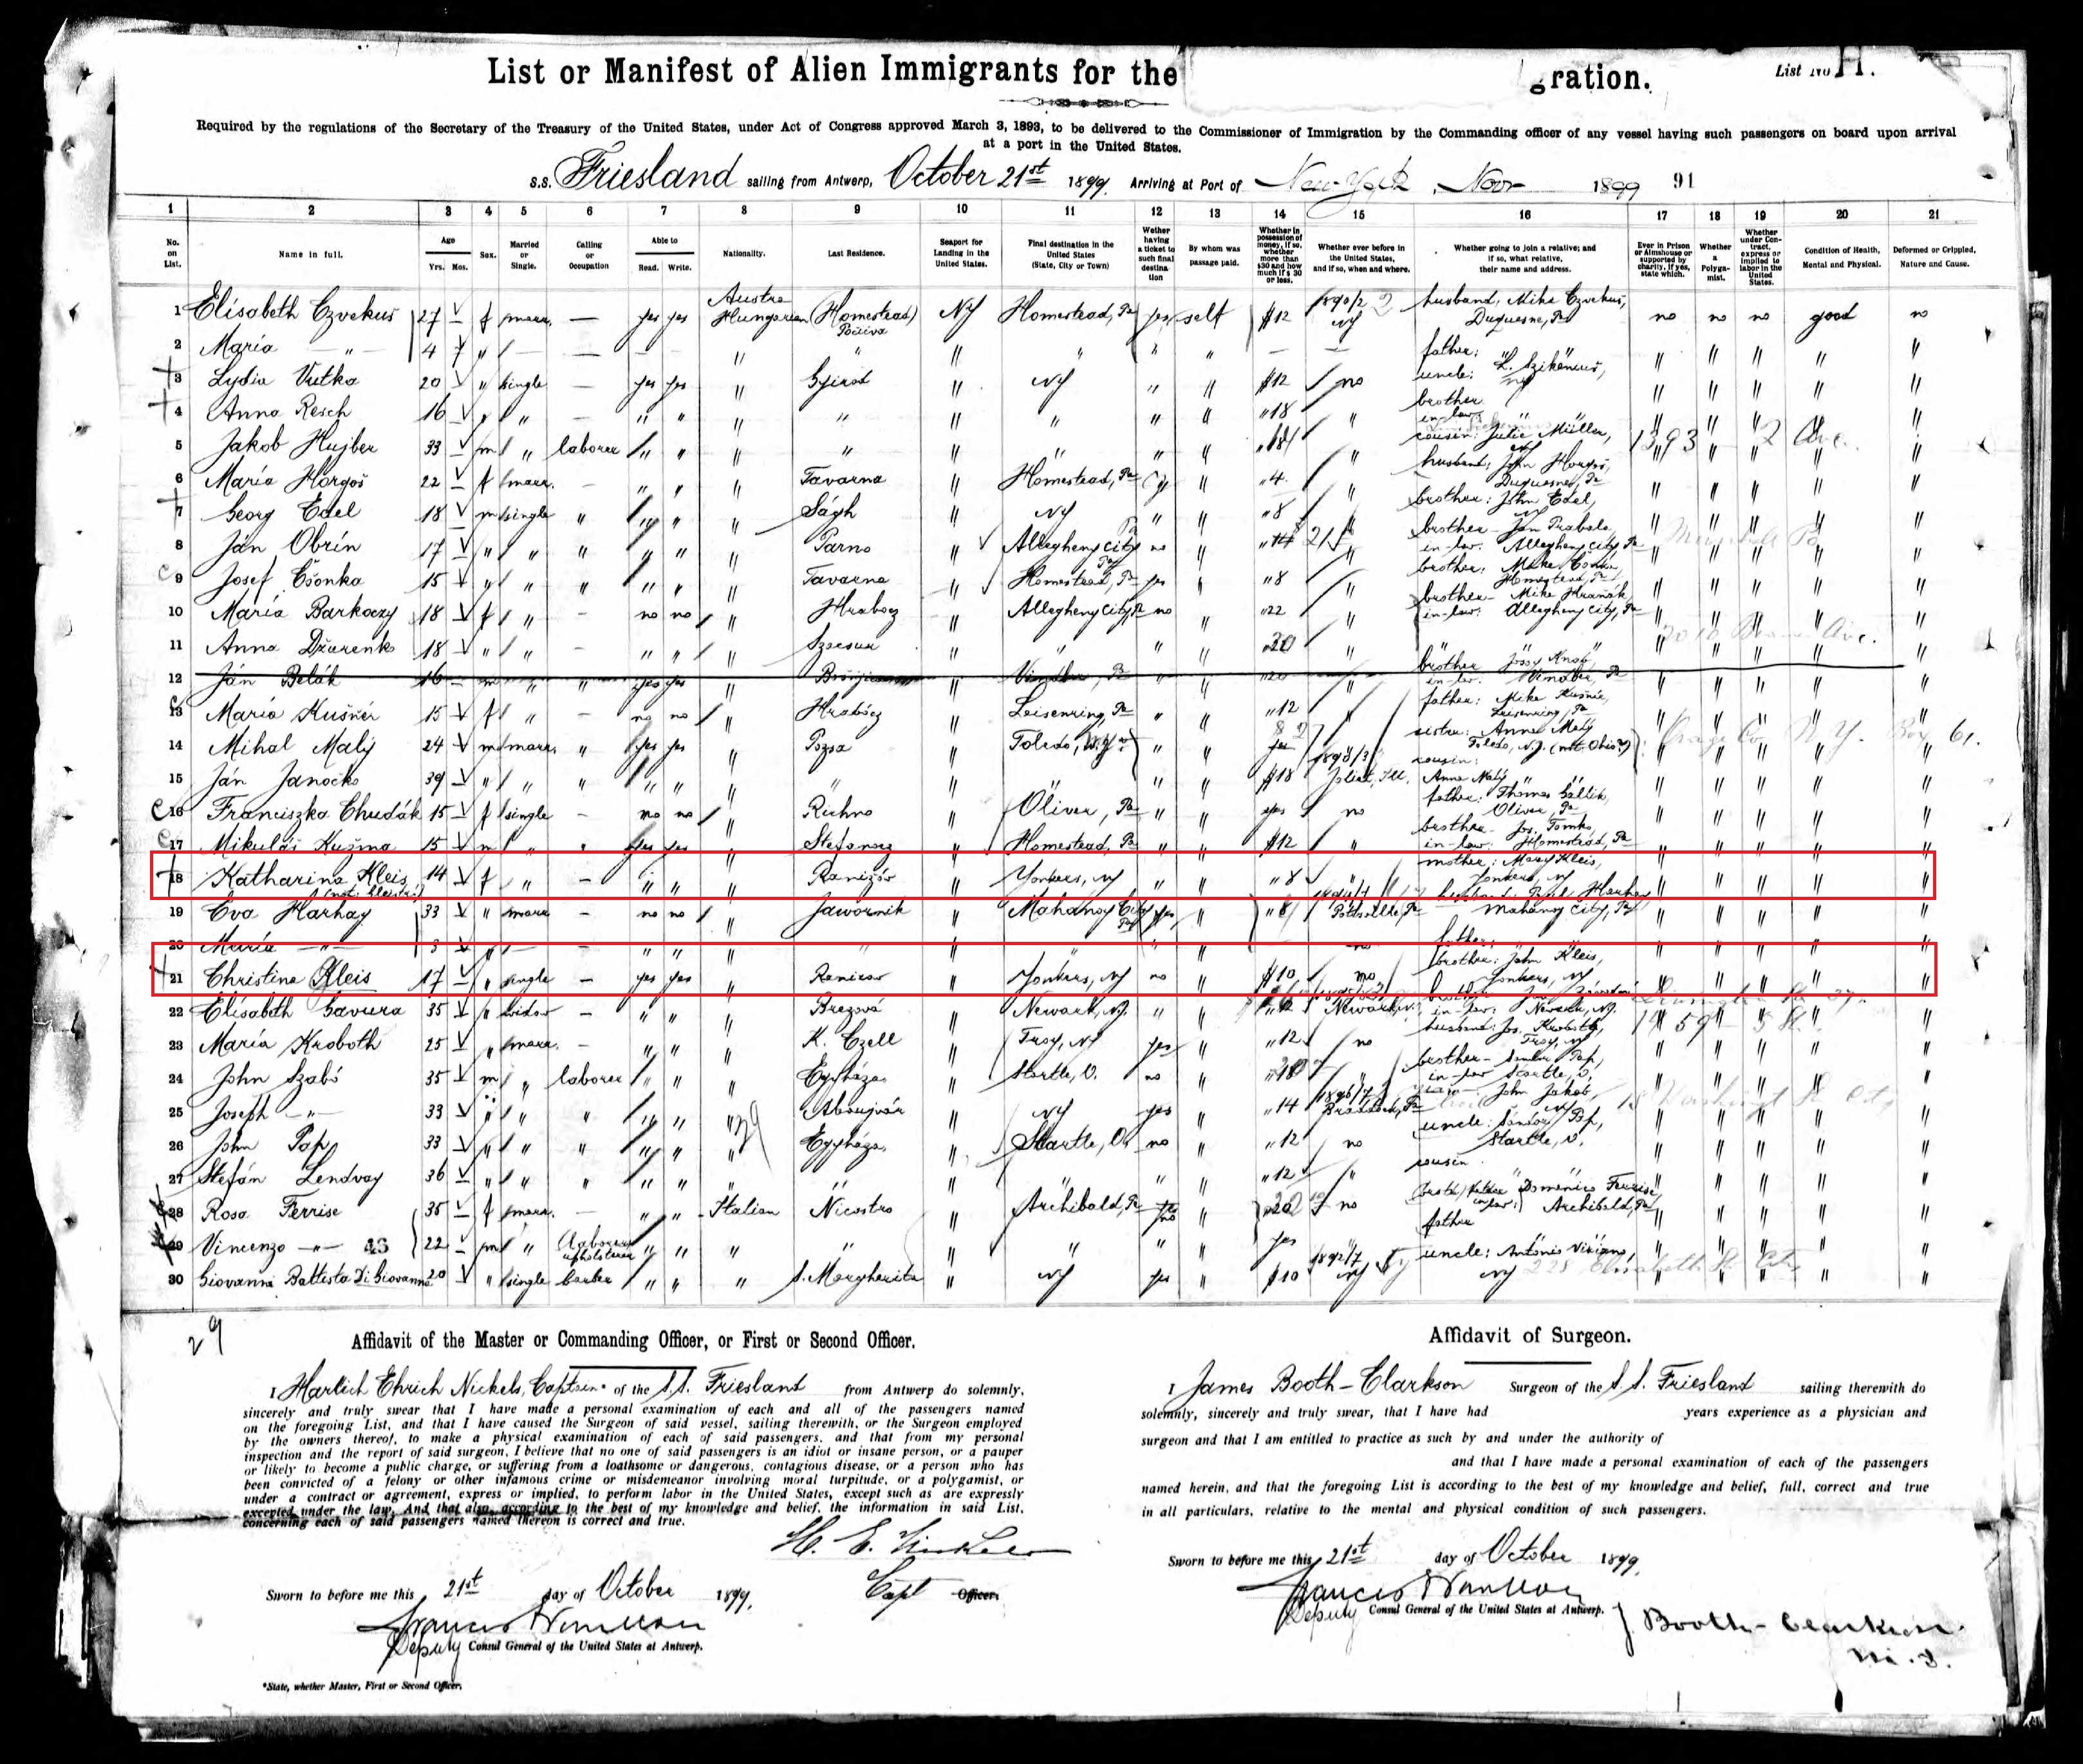 List or Manifest of Alien Immigrants for the gration. List No H.
Required by the regulations of the Secretary of the Treasury of the United States, under Act of Congress approved March 3, 1893, to be delivered to the Commissioner of Immigration by the Commanding officer of any vessel having such passengers on board upon arrival
at a port in the United States.
S.S. Friesland sailing from Antwerp, October 21st 1899. Arriving at Port of New-York, Nov 1899 91
1 2 3 4 5 6 7 8 9 10 11 12 13 14 15 16 17 18 19 20 21
No. on List. Name in full. Age Yrs. Mos. Sex. Married or Single. Calling or Occupation Able to Read. Write. Nationality. Last Residence. Seaport for Landing in the United States. Final destination in the United States (State, City or Town) Wether having a ticket to such final destination By whom was passage paid. Whether in possession of money, if so, whether more than $30 and how much if $ 30 or less. Whether ever before in the United States, and if so, when and where. Whether going to join a relative; and if so, what relative, their name and address. Ever in Prison or Almshouse or supported by charity, if yes, state which. Whether a Polygamist. Whether under Contract, express or implied to labor in the United States. Condition of Health, Mental and Physical. Deformed or Crippled, Nature and Cause.
1 Elisabeth Czvekus 27 f marr. — yes yes Austro Hungarian (Homestead) NY Homestead, Pa yes self $12 1890/2 NY husband, Mike Czvekus, Duquesne, Pa no no no good no
2 Maria —"— 4 " — — — " " " " " " — — father: " " " " " "
3 Lydia Vutka 20 " single — yes yes " " NY " " $12 no uncle: NY " " " " "
4 Anna Resch 16 " " — " " " " " " " " "18 " brother in-law " " " " " "
5 Jakob Hujber 33 m " laborer " " " " " " " " "18 " cousin: Julie Müller, NY 1393 - 2 Ave. " " " " "
6 Maria Horgos 22 f marr. — " " " Tavarna " Homestead, Pa " " "4 " husband: John Horgos, Duquesne, Pa " " " " "
7 Georg Edel 18 m single " " " " Ságh " NY " " "8 " brother: John Edel, NY " " " " "
8 Ján Obrin 17 " " " " " " Parno " Allegheny City Pa no " 21 " brother in-law. Jan Allegheny City, Pa " " " " "
9 Josef Csonka 15 " " " " " " Tavarna " Homestead, Pa yes " "8 " brother: Mike Homestead, Pa " " " " "
10 Maria Barkoczy 18 f " — no no " Hrabocz " Allegheny City, Pa no " "22 " brother-in-law: Mike Hranák Allegheny City, Pa " " " " "
11 Anna Dzurenko 18 " " — " " " " " " " "20 " " " " " " " "
12 Ján Belák 16 m " " yes yes " " Pa " " "20 " brother in-law. Pa " " " " "
13 Maria Kušnér 15 f " — no no " Hrabócz " Leisenring, Pa " " "12 " father: Mike Kušnér, Leisenring, Pa " " " " "
14 Mihal Malý 24 m marr. " yes yes " Pozsa " Toledo, " " yes " sister: Anna Malý Toledo, N.J. (not Ohio?) N.Y. Box 61. " " " " "
15 Ján Janocko 39 " " " " " " " " " " " $18 Joliet, Ill. cousin: Anna Malý " " " " "
16 Franciszka Chudák 15 f single — no no " Richno " Oliver, Pa " " yes no father: Thomas Oliver, Pa " " " " "
17 Mikuláš Kuzma 15 m " " yes yes " " Homestead, Pa " " $12 " brother-in-law: Jos. Tomko, Homestead, Pa " " " " "
18 Katharina Kleis 14 f " — " " " Ranizów " Yonkers, NY " " "8 " mother: Mary Kleis, Yonkers, NY " " " " "
19 Eva Harhay 33 " marr — no no " Jawornik " Mahanoy City Pa yes " "8 Pottsville, Pa husband: Harhay Mahanoy City, Pa " " " " "
20 Maria —"— 3 " — — " " " " " " " " no father: " " " " " " "
21 Christina Kleis 17 " single — yes yes " Ranizow " Yonkers, NY no " $10 no brother: John Kleis, Yonkers, NY " " " " "
22 Elisabeth Gavura 35 " widow — " " " Brezová " Newark, N.J. " " Newark, N.J. brother in-law: Newark, N.J. " " " " "
23 Maria Kroboth 25 " marr. — " " " K. Czell " Troy, NY yes " "12 no husband: Jos. Kroboth, Troy, NY 59 - 5 St. " " " " "
24 John Szabó 35 m " laborer " " " Egyháza " Startle, O. no " " brother-in-law Pap, Startle, O. " " " " "
25 Joseph —"— 33 " " " " " " Abaujvár " NY yes " "14 1896/7 Braddock, Pa John Jakob, NY " " " " "
26 John Pap 33 " " " " " " Egyháza " Startle, O. no " "12 no uncle: Sándor Pap, Startle, O. " " " " "
27 Stefán Lendvay 36 " " " " " " " " " " " "12 " cousin " " " " " "
28 Rosa Ferrise 35 f marr. — " " Italian Nicastro " Archibald, Pa no " "20 no Domenico Ferrise, Archibald, Pa " " " " "
29 Vincenzo —"— 43 22 m " laborer upholsterer " " " " " " " " yes father " " " " " "
30 Giovanni Battista Di Giovanni 20 " single barber " " " S. Margherita " NY yes " $10 1892/7 NY uncle: Antonio Viviano, NY 228 Elisabeth St City " " " " "
29
Affidavit of the Master or Commanding Officer, or First or Second Officer.
I Harlich Ehrich Nickels, Captain* of the S.S. Friesland from Antwerp do solemnly,
sincerely and truly swear that I have made a personal examination of each and all of the passengers named
on the foregoing List, and that I have caused the Surgeon of said vessel, sailing therewith, or the Surgeon employed
by the owners thereof, to make a physical examination of each of said passengers, and that from my personal
inspection and the report of said surgeon, I believe that no one of said passengers is an idiot or insane person, or a pauper
or likely to become a public charge, or suffering from a loathsome or dangerous, contagious disease, or a person who has
been convicted of a felony or other infamous crime or misdemeanor involving moral turpitude, or a polygamist, or
under a contract or agreement, express or implied, to perform labor in the United States, except such as are expressly
excepted under the law, And that also, according to the best of my knowledge and belief, the information in said List,
concerning each of said passengers named thereon is correct and true.
Capt Officer.
Sworn to before me this 21st day of October 1899.
Deputy Consul General of the United States at Antwerp.
*State, whether Master, First or Second Officer.
Affidavit of Surgeon.
I James Booth-Clarkson Surgeon of the S.S. Friesland sailing therewith do
solemnly, sincerely and truly swear, that I have had years experience as a physician and
surgeon and that I am entitled to practice as such by and under the authority of
and that I have made a personal examination of each of the passengers
named herein, and that the foregoing List is according to the best of my knowledge and belief, full, correct and true
in all particulars, relative to the mental and physical condition of such passengers.
Sworn to before me this 21st day of October 1899.
Deputy Consul General of the United States at Antwerp.
J Booth-Clarkson
M.D.